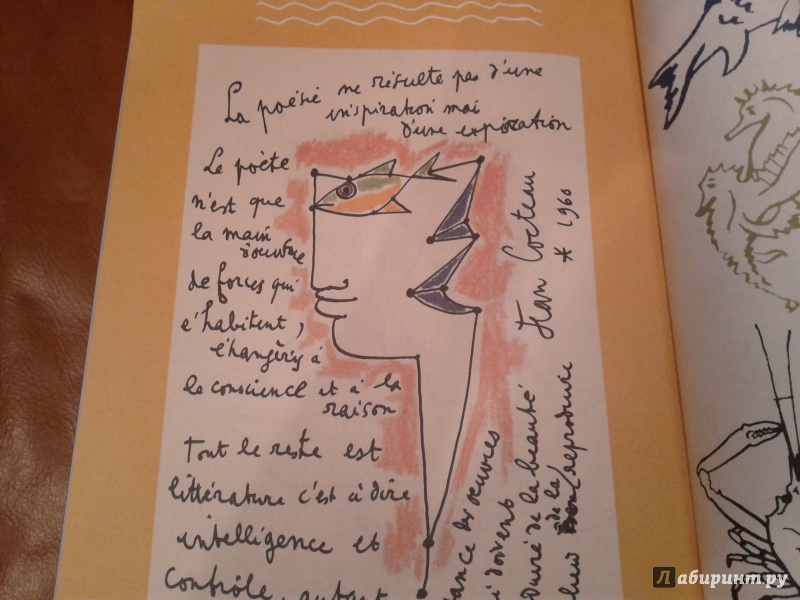 La poésie ne résulte pas d'une
inspiration mai
d'une expiration
Le poète
n'est que
la main
d'œuvre
de forces qui
l'habitent,
étrangères à
la conscience et à la
raison
Tout le reste est
littérature c'est à dire
intelligence et
contrôle, autant
Jean Cocteau
* 1960
des œuvres
doivent
de la beauté
de la reproduire
Лабиринт.ру